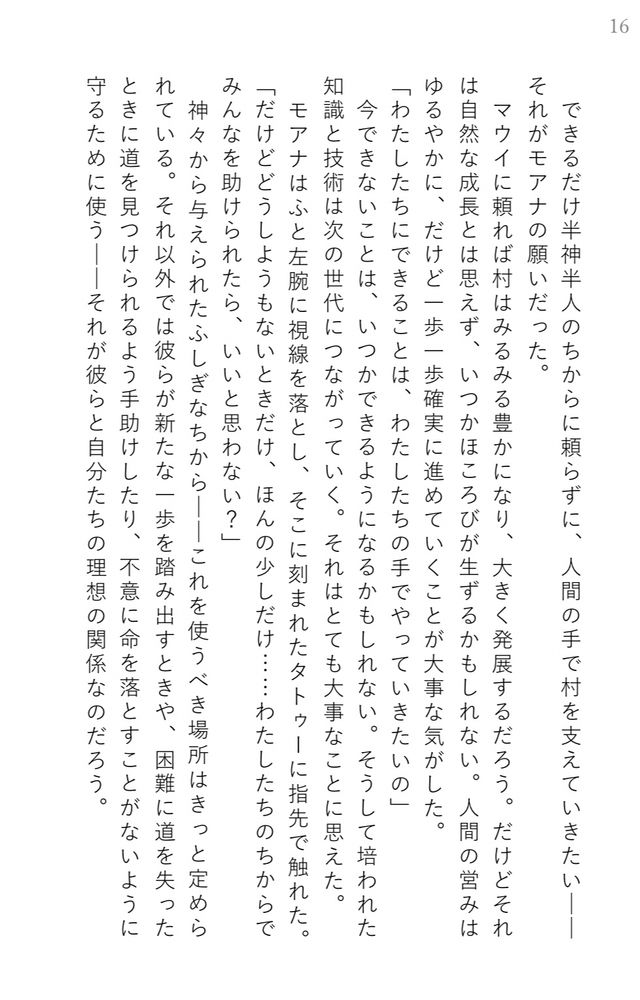 16
できるだけ半神半人のちからに頼らずに、人間の手で村を支えていきたい――
それがモアナの願いだった。
マウイに頼れば村はみるみる豊かになり、大きく発展するだろう。だけどそれ
は自然な成長とは思えず、いつかほころびが生ずるかもしれない。人間の営みは
ゆるやかに、だけど一歩一歩確実に進めていくことが大事な気がした。
「わたしたちにできることは、わたしたちの手でやっていきたいの」
今できないことは、いつかできるようになるかもしれない。そうして培われた
知識と技術は次の世代につながっていく。それはとても大事なことに思えた。
モアナはふと左腕に視線を落とし、そこに刻まれたタトゥーに指先で触れた。
「だけどどうしようもないときだけ、ほんの少しだけ……わたしたちのちからで
みんなを助けられたら、いいと思わない？」
神々から与えられたふしぎなちから――これを使うべき場所はきっと定めら
れている。それ以外では彼らが新たな一歩を踏み出すときや、困難に道を失った
ときに道を見つけられるよう手助けしたり、不意に命を落とすことがないように
守るために使う――それが彼らと自分たちの理想の関係なのだろう。